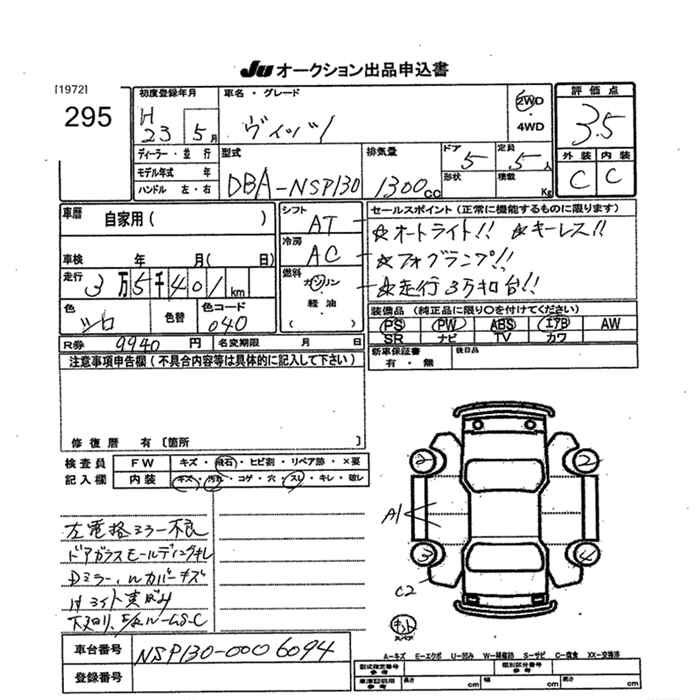 JU オークション出品申込書
[1972]
295
初度登録年月 H 23 5月
車名・グレード ヴィッツ
2WD
4WD
評価点 3.5
外装 C 内装 C
ディーラー・並行
モデル年式 年
ハンドル 左・右
型式 DBA-NSP130
排気量 1300cc
ドア 5
定員 5人
形状
積載 Kg
車暦 自家用( )
車検 年 月( 日)
走行 3万5千401km
色 シロ
色替
色コード 040
R券 9940円
名変期限 月 日
シフト AT
冷房 AC
燃料 ガソリン・軽油・( )
セールスポイント(正常に機能するものに限ります)
☆オートライト!! ☆キーレス!!
☆フォグランプ!!
☆走行3万キロ台!!
装備品(純正品に限り○を付けてください)
PS PW ABS エアB AW
SR ナビ TV カワ
新車保証書 有・無
後日品
注意事項申告欄(不具合内容等は具体的に記入して下さい)
修復暦 有〔箇所 〕
検査員記入欄
FW キズ・飛石・ヒビ割・リペア跡・×要
内装 キズ・汚れ・コゲ・穴・スレ・キレ・破レ
左電格ミラー不良
ドアガラスモールディングキレ
Dミラー、ルカバーキズ
2 2 3 4
A1
C2
車台番号 NSP130-0006094
登録番号
A-キズ E-エクボ U-凹み W-補修跡 S-サビ C-腐食 XX-交換済
型式指定番号 参考
類別区分番号 参考
車庫証明用 参考
長さ cm
幅 cm
高さ cm